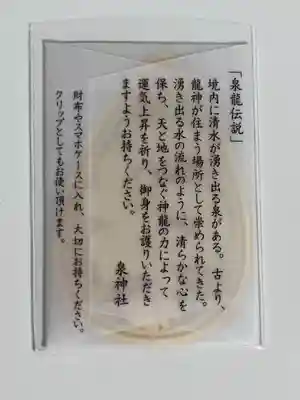 「泉龍伝説」
境内に清水が湧き出る泉がある。古より、
龍神が住まう場所として崇められてきた。
湧き出る水の流れのように、清らかな心を
保ち、天と地をつなぐ神龍の力によって
運気上昇を祈り、御身をお護りいただき
ますようお持ちください。
泉神社
財布やスマホケースに入れ、大切にお持ちください。
クリップとしてもお使い頂けます。